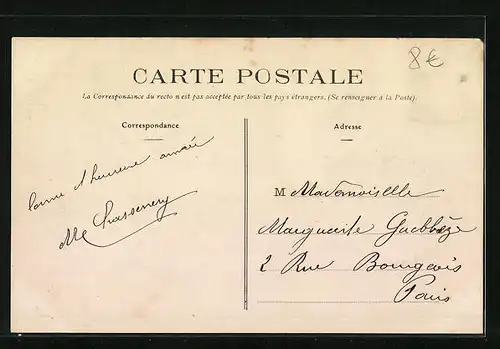 8€
CARTE POSTALE
La Correspondance du recto n'est pas acceptée par tous les pays étrangers. (Se renseigner à la Poste).
Correspondance
Adresse
bonne et heureuse année
Mlle
M Mademoiselle
Marguerite
2 Rue Bourgeois
Paris